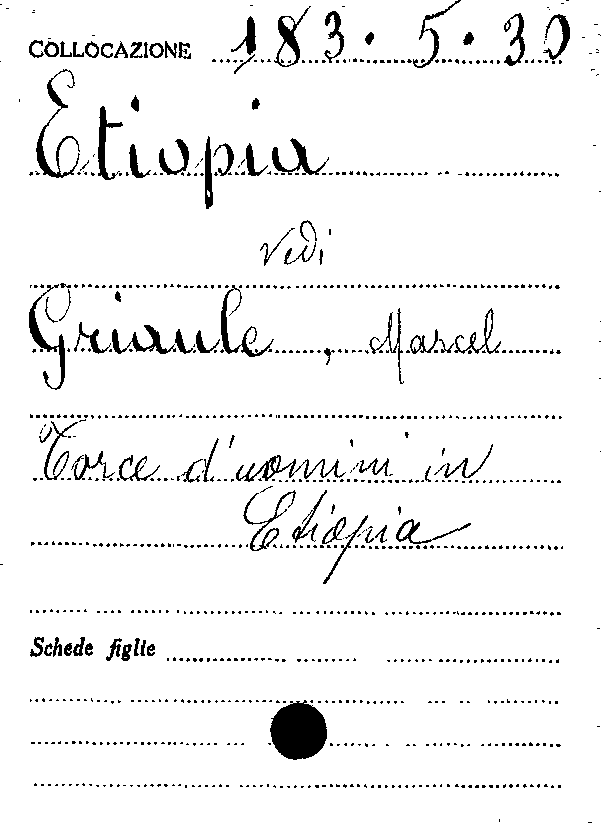 COLLOCAZIONE 183.5.30
Etiopia
Vedi
Griaule, Marcel
Torce d'uomini in
Etiopia
Schede figlie